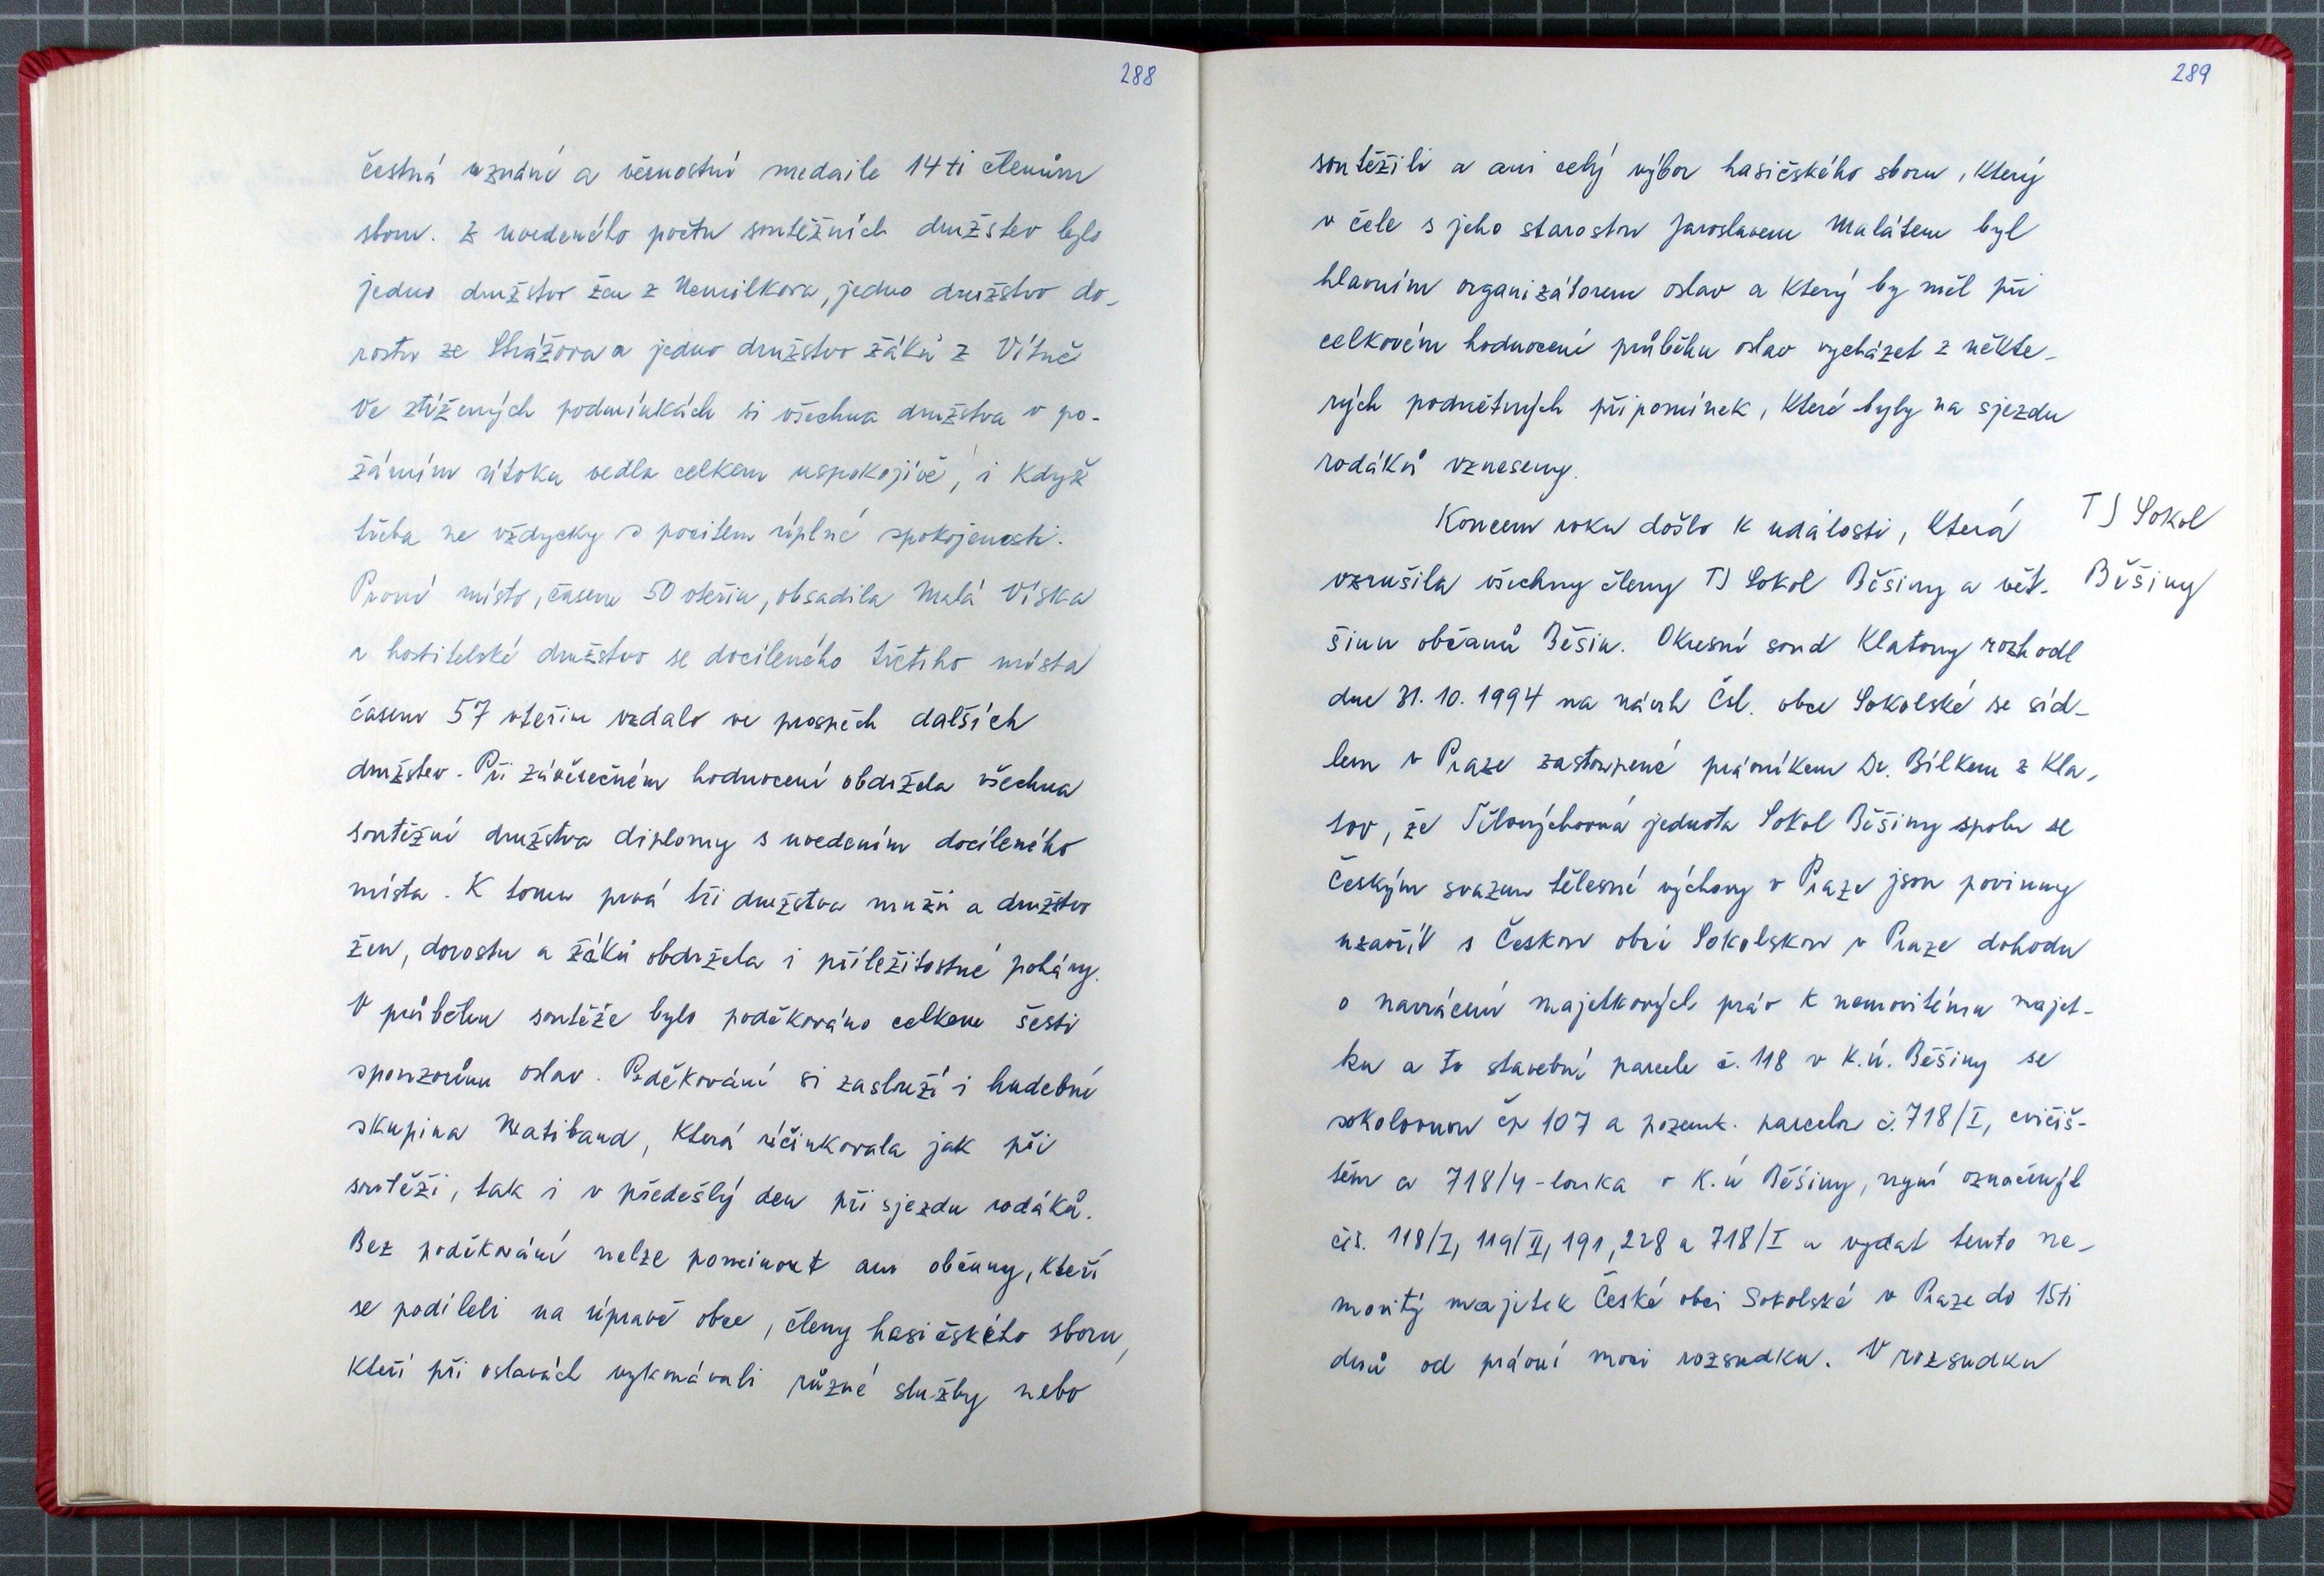 288
čestná uznání a věrnostní medaile 14ti členům
sboru. Z uvedeného počtu soutěžních družstev bylo
jedno družstvo žen z Nemilkova, jedno družstvo do-
rostu ze Strážova a jedno družstvo žáků z Vítně
Ve ztížených podmínkách si všechna družstva v po-
žárním útoku vedla celkem uspokojivě, i když
třeba ne vždycky s pocitem úplné spokojenosti.
První místo, časem 50 vteřin, obsadila Malá Víska
a hostitelské družstvo se docíleného třetího místa
časem 57 vteřin vzdalo ve prospěch dalších
družstev. Při závěrečném hodnocení obdržela všechna
soutěžní družstva diplomy s uvedením docíleného
místa. K tomu prvá tři družstva mužů a družstvo
žen, dorostu a žáků obdržela i příležitostné poháry.
V průběhu soutěže bylo poděkováno celkem šesti
sponzorům oslav. Poděkování si zaslouží i hudební
skupina Matiband, která účinkovala jak při
soutěži, tak i v předešlý den při sjezdu rodáků.
Bez poděkování nelze pominout ani občany, kteří
se podíleli na úpravě obce, členy hasičského sboru,
kteří při oslavách vykonávali různé služby nebo
289
soutěžili a ani celý výbor hasičského sboru, který
v čele s jeho starostou Jaroslavem Malátem byl
hlavním organizátorem oslav a který by měl při
celkovém hodnocení průběhu oslav vycházet z někte-
rých podnětných připomínek, které byly na sjezdu
rodáků vzneseny.
Koncem roku došlo k události, která
vzrušila všechny členy TJ Sokol Běšiny a vět-
šinu občanů Běšin. Okresní soud Klatovy rozhodl
dne 31. 10. 1994 na návrh Čsl. obce Sokolské se síd-
lem v Praze zastoupené právníkem Dr. Bílkem z Kla-
tov, že Tělovýchovná jednota Sokol Běšiny spolu se
Českým svazem tělesné výchovy v Praze jsou povinny
uzavřít s Českou obcí Sokolskou v Praze dohodu
o navrácení majetkových práv k nemovitému majet-
ku a to stavební parcele č. 118 v k.ú. Běšiny se
sokolovnou čp 107 a pozemk. parcelou č. 718/I, cvičiš-
těm a 718/4 - louka v k.ú Běšiny, nyní označených
čís. 118/I, 119/II, 191, 228 a 718/I a vydat tento ne-
movitý majetek České obci Sokolské v Praze do 15ti
dnů od právní moci rozsudku. V rozsudku
TJ Sokol
Běšiny